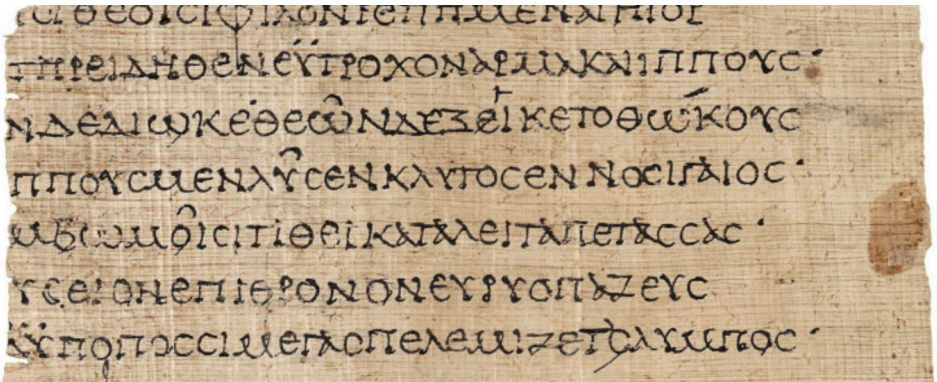 ΘΕΟΙCΙΦΙΛΟΝΤΕΤΙΗΜΕΝΑΙΗΤΟΡ
ΤΗΡΕΙΔΗΘΕΝΕΫΤΡΟΧΟΝΑΡΜΑΚΑΙΙΠΠΟΥC·
ΝΔΕΔΙωΚΕΘΕῶΝΔΕΞΕΙΚΕΤΟΘώΚΟΥC
ΠΠΟΥCΜΕΝΛῦCΕΝΚΛΥΤΟCΕΝΝΟCΙΓΑΙΟC·
ΜΒωΜΟῖCΙΤΙΘΕΙΚΑΤΑΛΕΙΤΑΠΕΤΑCCΑC·
ΥCΕΙΟΝΕΠΙΘΡΟΝΟΝΕΥΡΥΟΠΑΖΕΥC
ΫΠΟΠΟCCΙΜΕΓΑCΠΕΛΕΜΙΖΕΤΟΛΥΜΠΟC·